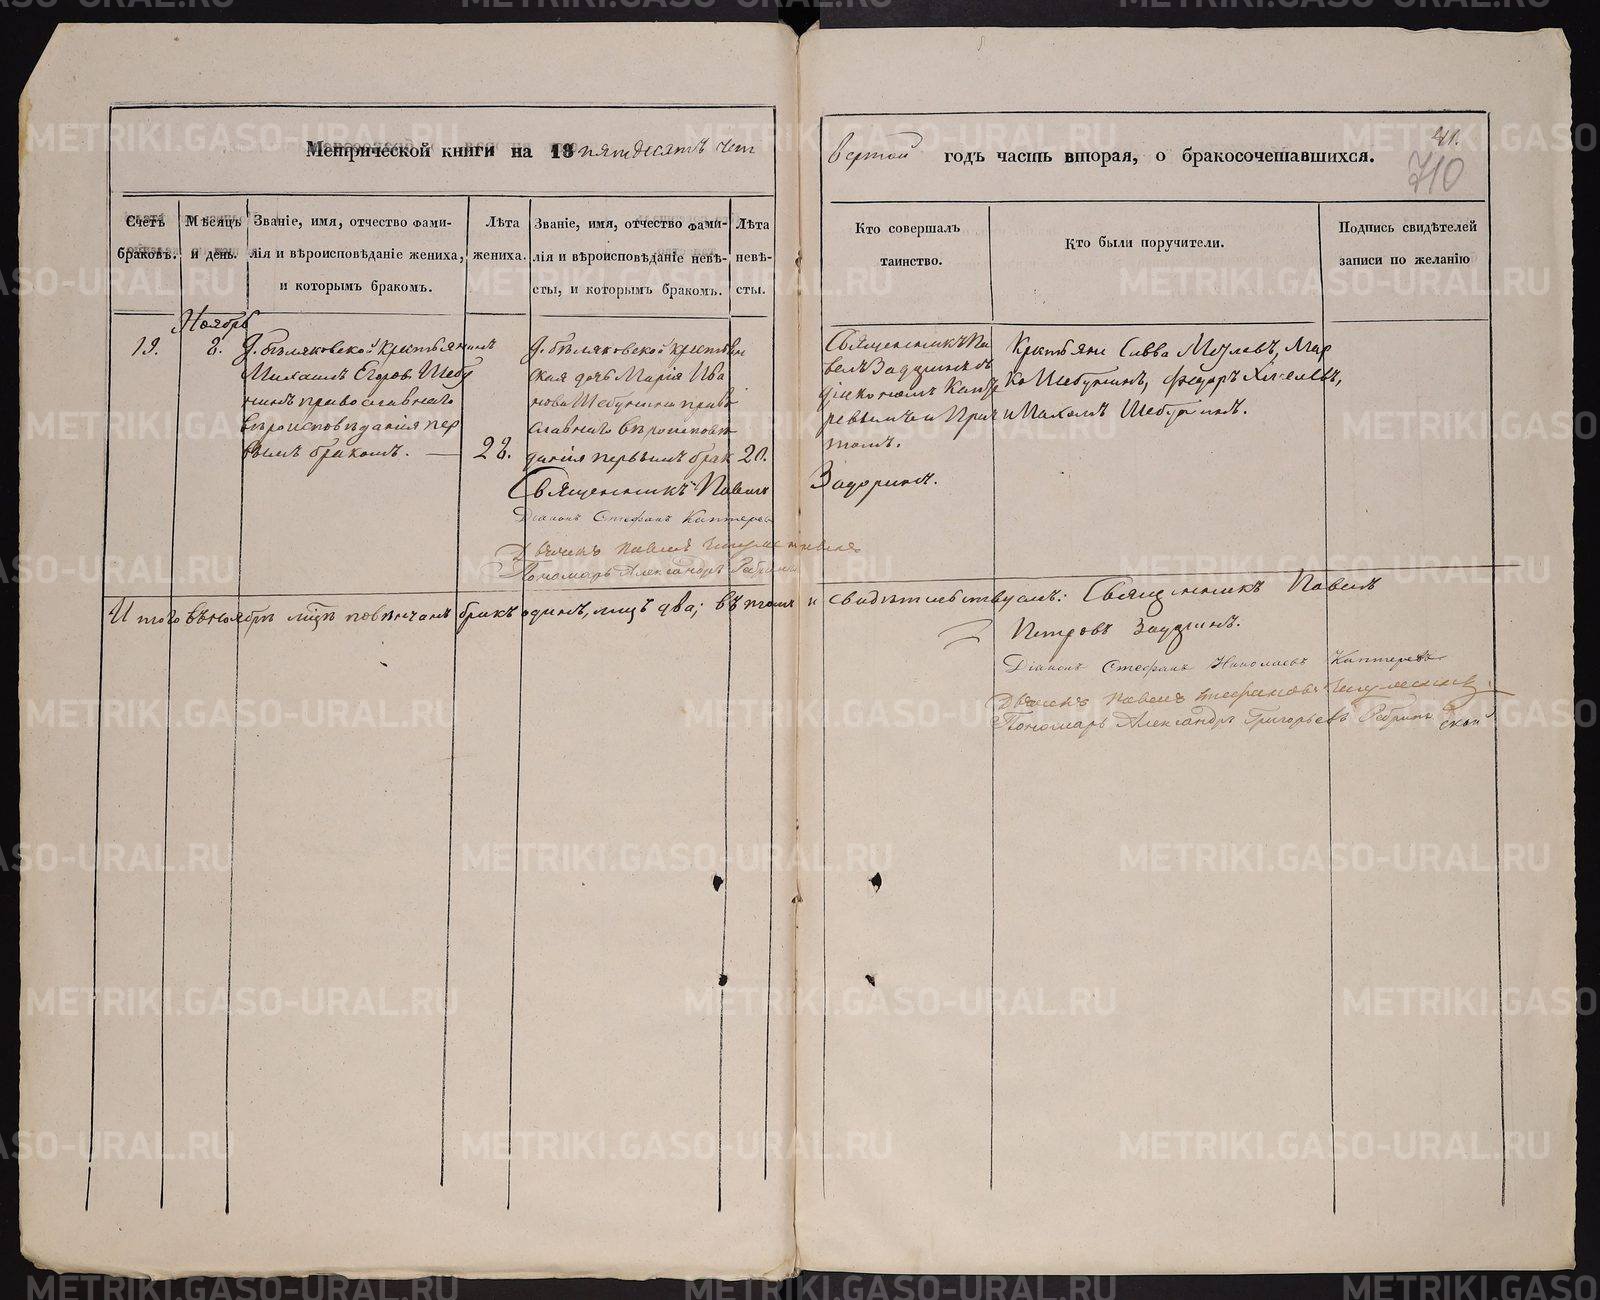 Метрической книги на 18 пятдесятъ чет
вертой годъ часть вторая, о бракосочетавшихся.
41.
710
Счетъ браковъ.
Мѣсяцъ и день.
Званіе, имя, отчество фами-
лія и вѣроисповѣданіе жениха,
и которымъ бракомъ.
Лѣта
жениха.
Званіе, имя, отчество фами-
лія и вѣроисповѣданіе невѣ-
сты, и которымъ бракомъ.
Лѣта
невѣ-
сты.
Кто совершалъ
таинство.
Кто были поручители.
Подпись свидѣтелей
записи по желанію
Ноябрь
19.
8.
Д. Бѣляковской крестьянинъ
Михаилъ Егоровъ Шебу
нинъ православнаго
вѣроисповѣданія пер
вымъ бракомъ.
28.
Д. Бѣляковской крестьян
ская дочь Марія Ива
нова Шебунина право
славнаго вѣроисповѣ
данія первымъ брак
20.
Священникъ Па
велъ Задоринъ съ
діакономъ Капте
ревымъ и Прич
томъ.
Крестьяне Савва
Шебунинъ, Федоръ
и Шебунинъ.
Священникъ Павелъ Задоринъ.
Діаконъ Стефанъ Каптеревъ
Дьячекъ Павелъ
Пономарь Александръ
Итого въ ноябрѣ м҃цѣ повѣнчанъ бракъ одинъ, лицъ два; въ томъ и свидѣтельствуемъ: Священникъ Павелъ
Петровъ Задоринъ.
Діаконъ Стефанъ Николаевъ Каптеревъ
Дьячекъ Павелъ Стефановъ
Пономарь Александръ Григорьевъ
METRIKI.GASO-URAL.RU